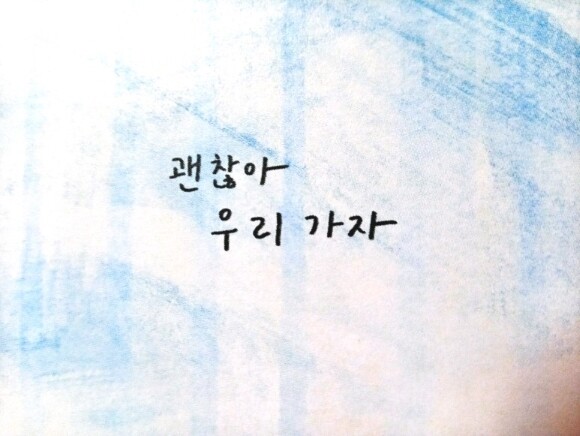 괜찮아
우리 가자